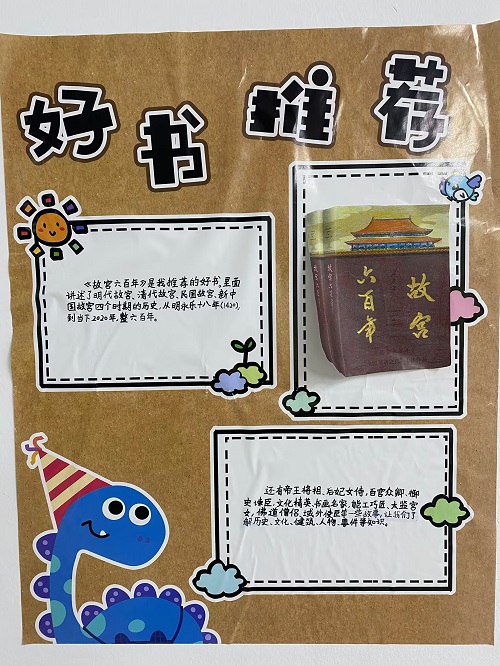 好书推荐
《故宫六百年》是我推荐的好书，里面
讲述了明代故宫、清代故宫、民国故宫、新中
国故宫四个时期的历史，从明永乐十八年(1420)，
到当下2020年，整六百年。
故宫
六百年
还有帝王将相、后妃女侍，百官众卿、御
史谏臣，文化精英、书画名家，能工巧匠、太监宫
女，佛道僧侣、域外使臣等一些故事，让我们了
解历史、文化、建筑、人物、事件等知识。